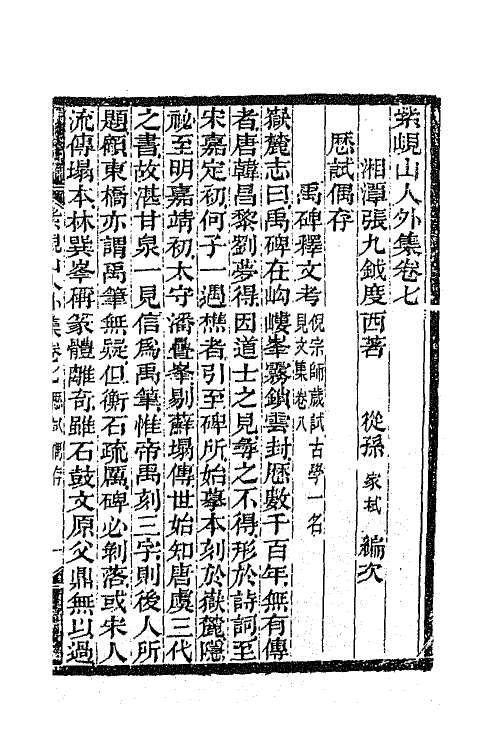 紫峴山人外集卷七
湘潭張九鉞度西著　從孫家栻編次
歷試偶存
禹碑釋文考倪宗師歲試古學一名見文集卷八
嶽麓志曰禹碑在岣嶁峯霧鎖雲封歷數千百年無有傳
者唐韓昌黎劉夢得因道士之見尋之不得形於詩詞至
宋嘉定初何子一遇樵者引至碑所始摹本刻於嶽麓隱
祕至明嘉靖初太守潘疊峯剔蘚塌傳世始知唐虞三代
之書故湛甘泉一見信爲禹筆惟帝禹刻三字則後人所
題顧東橋亦謂禹筆無疑但衡石疏厲碑必剝落或宋人
流傳塌本林巽峯稱篆體離奇雖石鼓文原父鼎無以過
紫峴山人外集卷七 歷試偶存 一